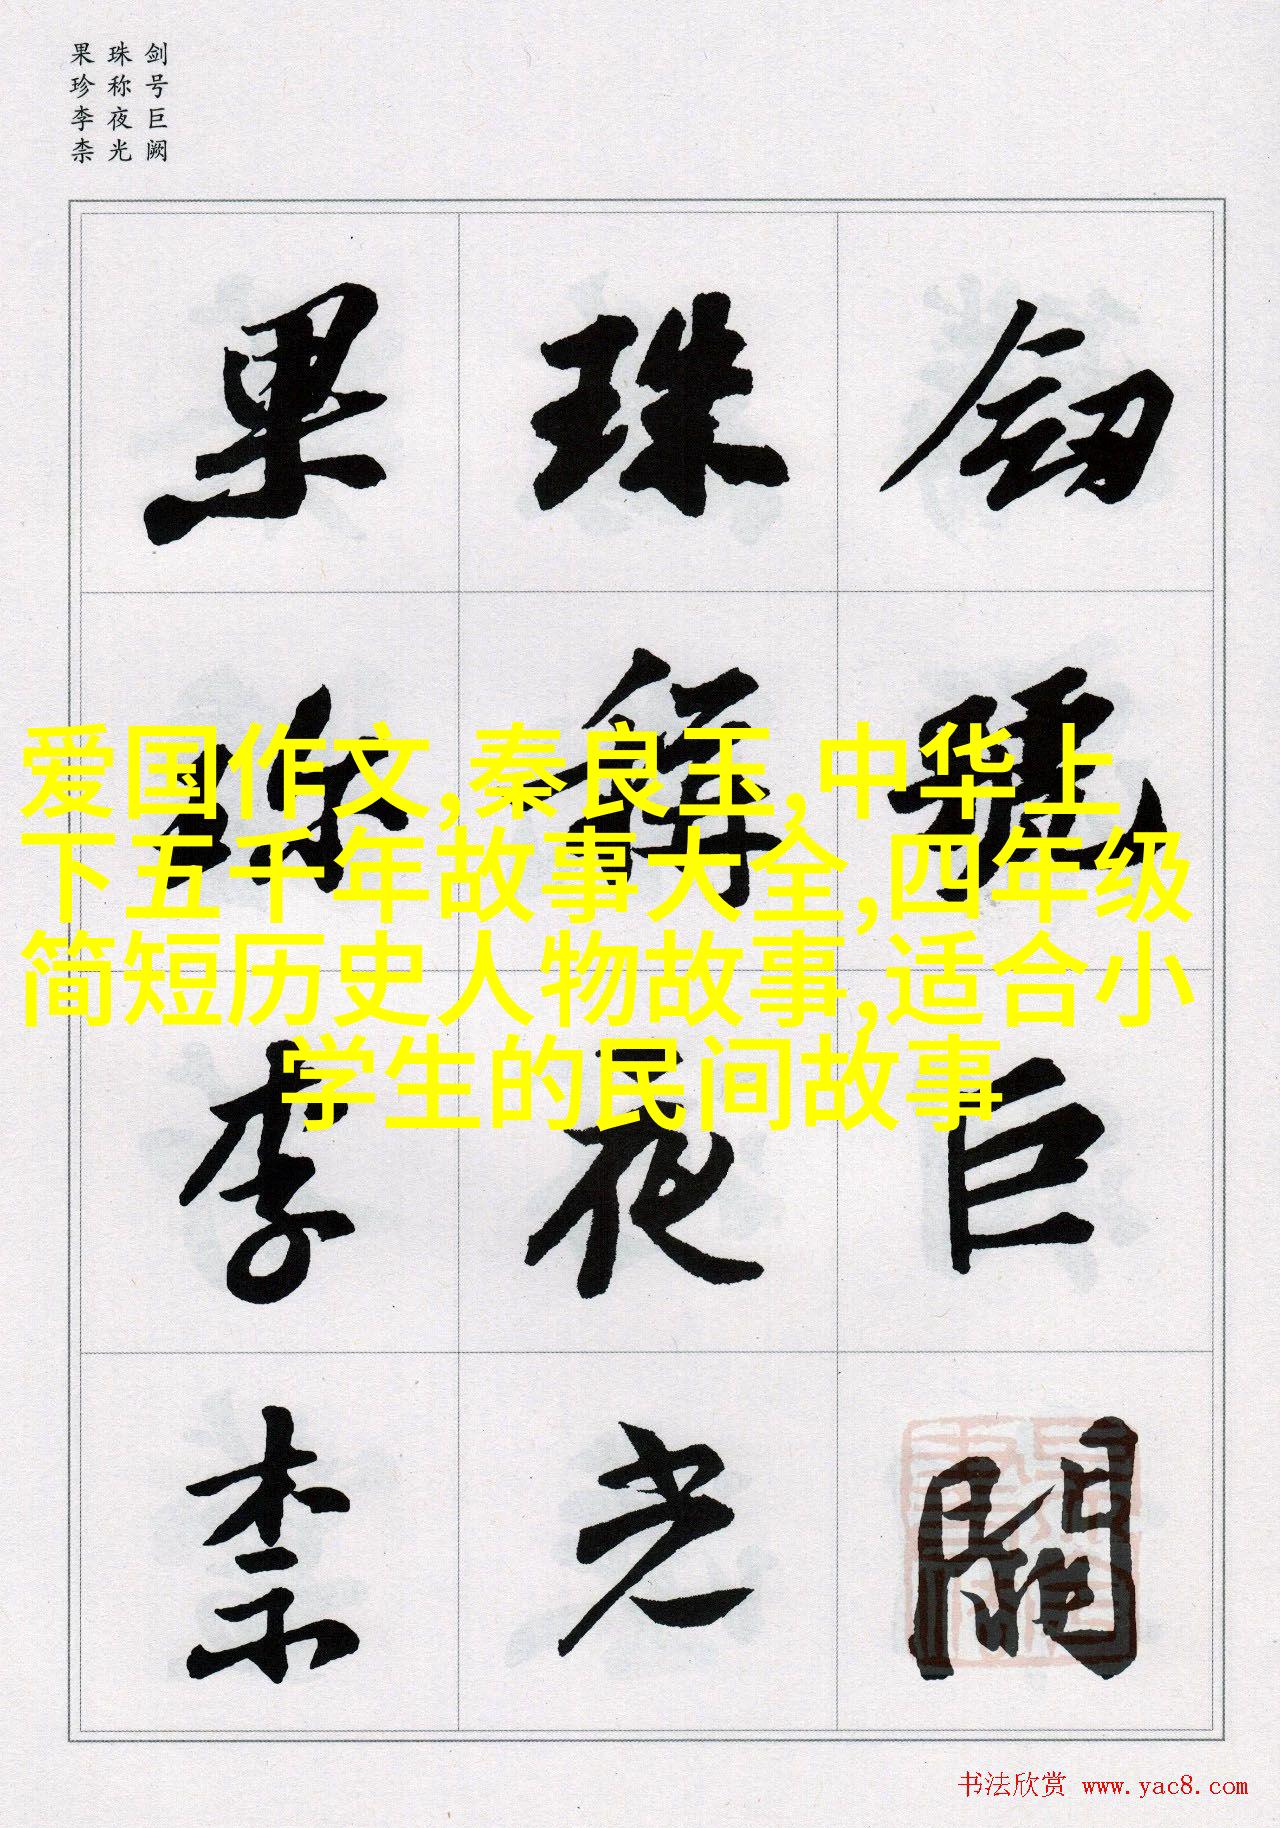 剑号巨阙
珠称夜光
果珍李柰
劒 號 巨 闕
珠 稱 夜 光
果 珎 李 柰
爱国作文,秦良玉,中华上
下五千年故事大全,四年级
简短历史人物故事,适合小
学生的民间故事
书法欣赏 www.yac8.com